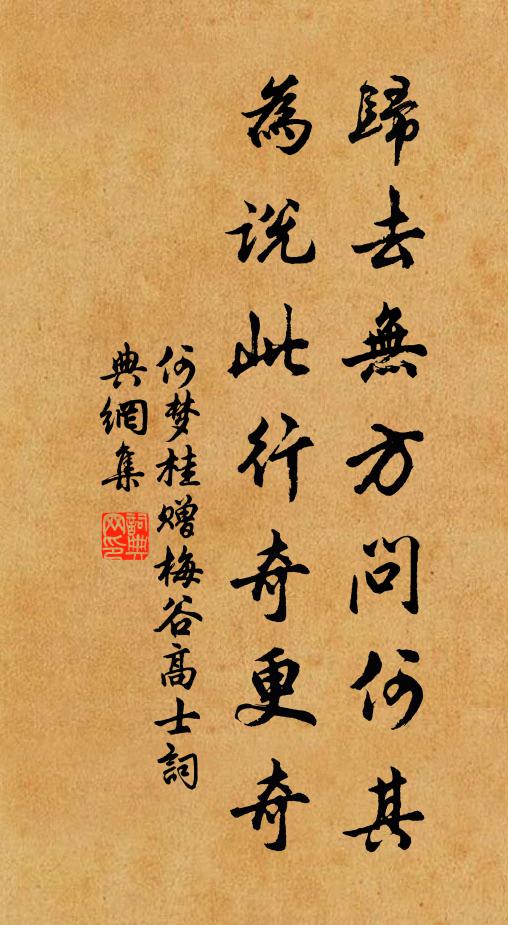 歸去無方問何其
為說此行奇更奇
何梦桂赠梅谷高士詞
典網集
詞典
网印